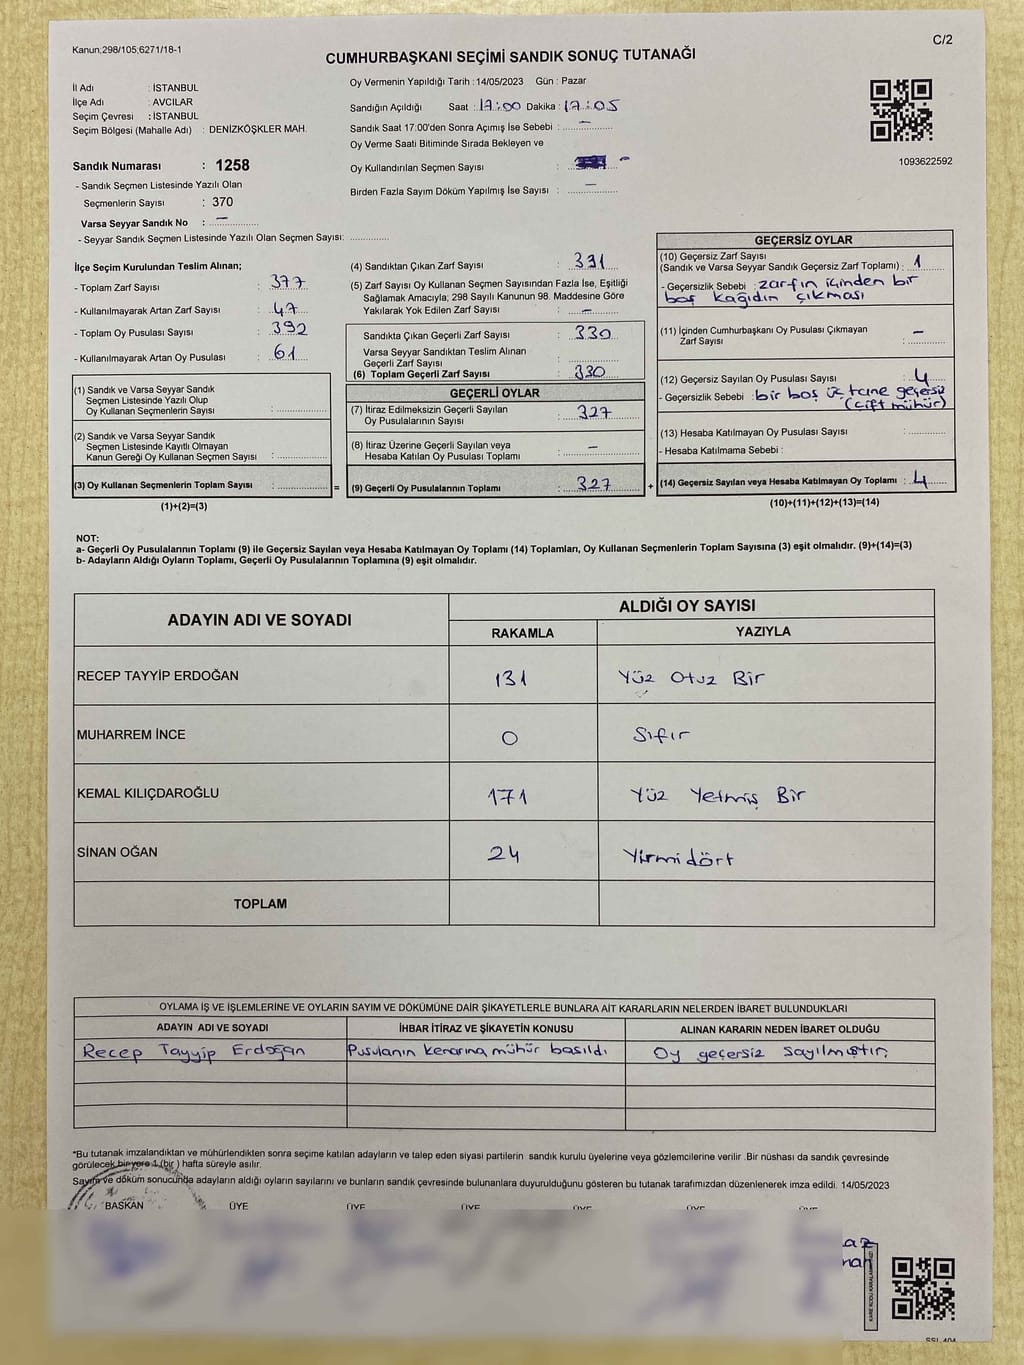 Kanun;298/105;6271/18-1
C/2
CUMHURBAŞKANI SEÇİMİ SANDIK SONUÇ TUTANAĞI
İl Adı : İSTANBUL
İlçe Adı : AVCILAR
Seçim Çevresi : İSTANBUL
Seçim Bölgesi (Mahalle Adı) : DENİZKÖŞKLER MAH.
Sandık Numarası : 1258
- Sandık Seçmen Listesinde Yazılı Olan
Seçmenlerin Sayısı : 370
Varsa Seyyar Sandık No : —
- Seyyar Sandık Seçmen Listesinde Yazılı Olan Seçmen Sayısı:
Oy Vermenin Yapıldığı Tarih : 14/05/2023 Gün : Pazar
Sandığın Açıldığı Saat : 17:00 Dakika : 17:05
Sandık Saat 17:00'den Sonra Açımış İse Sebebi : —
Oy Verme Saati Bitiminde Sırada Bekleyen ve
Oy Kullandırılan Seçmen Sayısı : —
Birden Fazla Sayım Döküm Yapılmış İse Sayısı : —
1093622592
İlçe Seçim Kurulundan Teslim Alınan;
- Toplam Zarf Sayısı : 377
- Kullanılmayarak Artan Zarf Sayısı : 47
- Toplam Oy Pusulası Sayısı : 392
- Kullanılmayarak Artan Oy Pusulası : 61
(1) Sandık ve Varsa Seyyar Sandık
Seçmen Listesinde Yazılı Olup
Oy Kullanan Seçmenlerin Sayısı :
(2) Sandık ve Varsa Seyyar Sandık
Seçmen Listesinde Kayıtlı Olmayan
Kanun Gereği Oy Kullanan Seçmen Sayısı :
(3) Oy Kullanan Seçmenlerin Toplam Sayısı : =
(1)+(2)=(3)
(4) Sandıktan Çıkan Zarf Sayısı : 331
(5) Zarf Sayısı Oy Kullanan Seçmen Sayısından Fazla İse, Eşitliği
Sağlamak Amacıyla; 298 Sayılı Kanunun 98. Maddesine Göre
Yakılarak Yok Edilen Zarf Sayısı : —
Sandıkta Çıkan Geçerli Zarf Sayısı : 330
Varsa Seyyar Sandıktan Teslim Alınan
Geçerli Zarf Sayısı :
(6) Toplam Geçerli Zarf Sayısı : 330
GEÇERLİ OYLAR
(7) İtiraz Edilmeksizin Geçerli Sayılan
Oy Pusulalarının Sayısı : 327
(8) İtiraz Üzerine Geçerli Sayılan veya
Hesaba Katılan Oy Pusulası Toplamı : —
(9) Geçerli Oy Pusulalarının Toplamı : 327 +
GEÇERSİZ OYLAR
(10) Geçersiz Zarf Sayısı
(Sandık ve Varsa Seyyar Sandık Geçersiz Zarf Toplamı) : 1
- Geçersizlik Sebebi : zarfın içinden bir
boş kağıdın çıkması
(11) İçinden Cumhurbaşkanı Oy Pusulası Çıkmayan
Zarf Sayısı : —
(12) Geçersiz Sayılan Oy Pusulası Sayısı : 4
- Geçersizlik Sebebi : bir boş üç tane geçersiz
(çift mühür)
(13) Hesaba Katılmayan Oy Pusulası Sayısı :
- Hesaba Katılmama Sebebi :
(14) Geçersiz Sayılan veya Hesaba Katılmayan Oy Toplamı : 4
(10)+(11)+(12)+(13)=(14)
NOT:
a- Geçerli Oy Pusulalarının Toplamı (9) ile Geçersiz Sayılan veya Hesaba Katılmayan Oy Toplamı (14) Toplamları, Oy Kullanan Seçmenlerin Toplam Sayısına (3) eşit olmalıdır. (9)+(14)=(3)
b- Adayların Aldığı Oyların Toplamı, Geçerli Oy Pusulalarının Toplamına (9) eşit olmalıdır.
ADAYIN ADI VE SOYADI
ALDIĞI OY SAYISI
RAKAMLA YAZIYLA
RECEP TAYYİP ERDOĞAN 131 Yüz Otuz Bir
MUHARREM İNCE 0 Sıfır
KEMAL KILIÇDAROĞLU 171 Yüz Yetmiş Bir
SİNAN OĞAN 24 Yirmidört
TOPLAM
OYLAMA İŞ VE İŞLEMLERİNE VE OYLARIN SAYIM VE DÖKÜMÜNE DAİR ŞİKAYETLERLE BUNLARA AİT KARARLARIN NELERDEN İBARET BULUNDUKLARI
ADAYIN ADI VE SOYADI İHBAR İTİRAZ VE ŞİKAYETİN KONUSU ALINAN KARARIN NEDEN İBARET OLDUĞU
Recep Tayyip Erdoğan Pusulanın kenarına mühür basıldı Oy geçersiz sayılmıştır.
*Bu tutanak imzalandıktan ve mühürlendikten sonra seçime katılan adayların ve talep eden siyasi partilerin sandık kurulu üyelerine veya gözlemcilerine verilir .Bir nüshası da sandık çevresinde
görülecek bir yere 1 (bir ) hafta süreyle asılır.
Sayım ve döküm sonucunda adayların aldığı oyların sayılarını ve bunların sandık çevresinde bulunanlara duyurulduğunu gösteren bu tutanak tarafımızdan düzenlenerek imza edildi. 14/05/2023
BAŞKAN ÜYE ÜYE ÜYE ÜYE ÜYE ÜYE